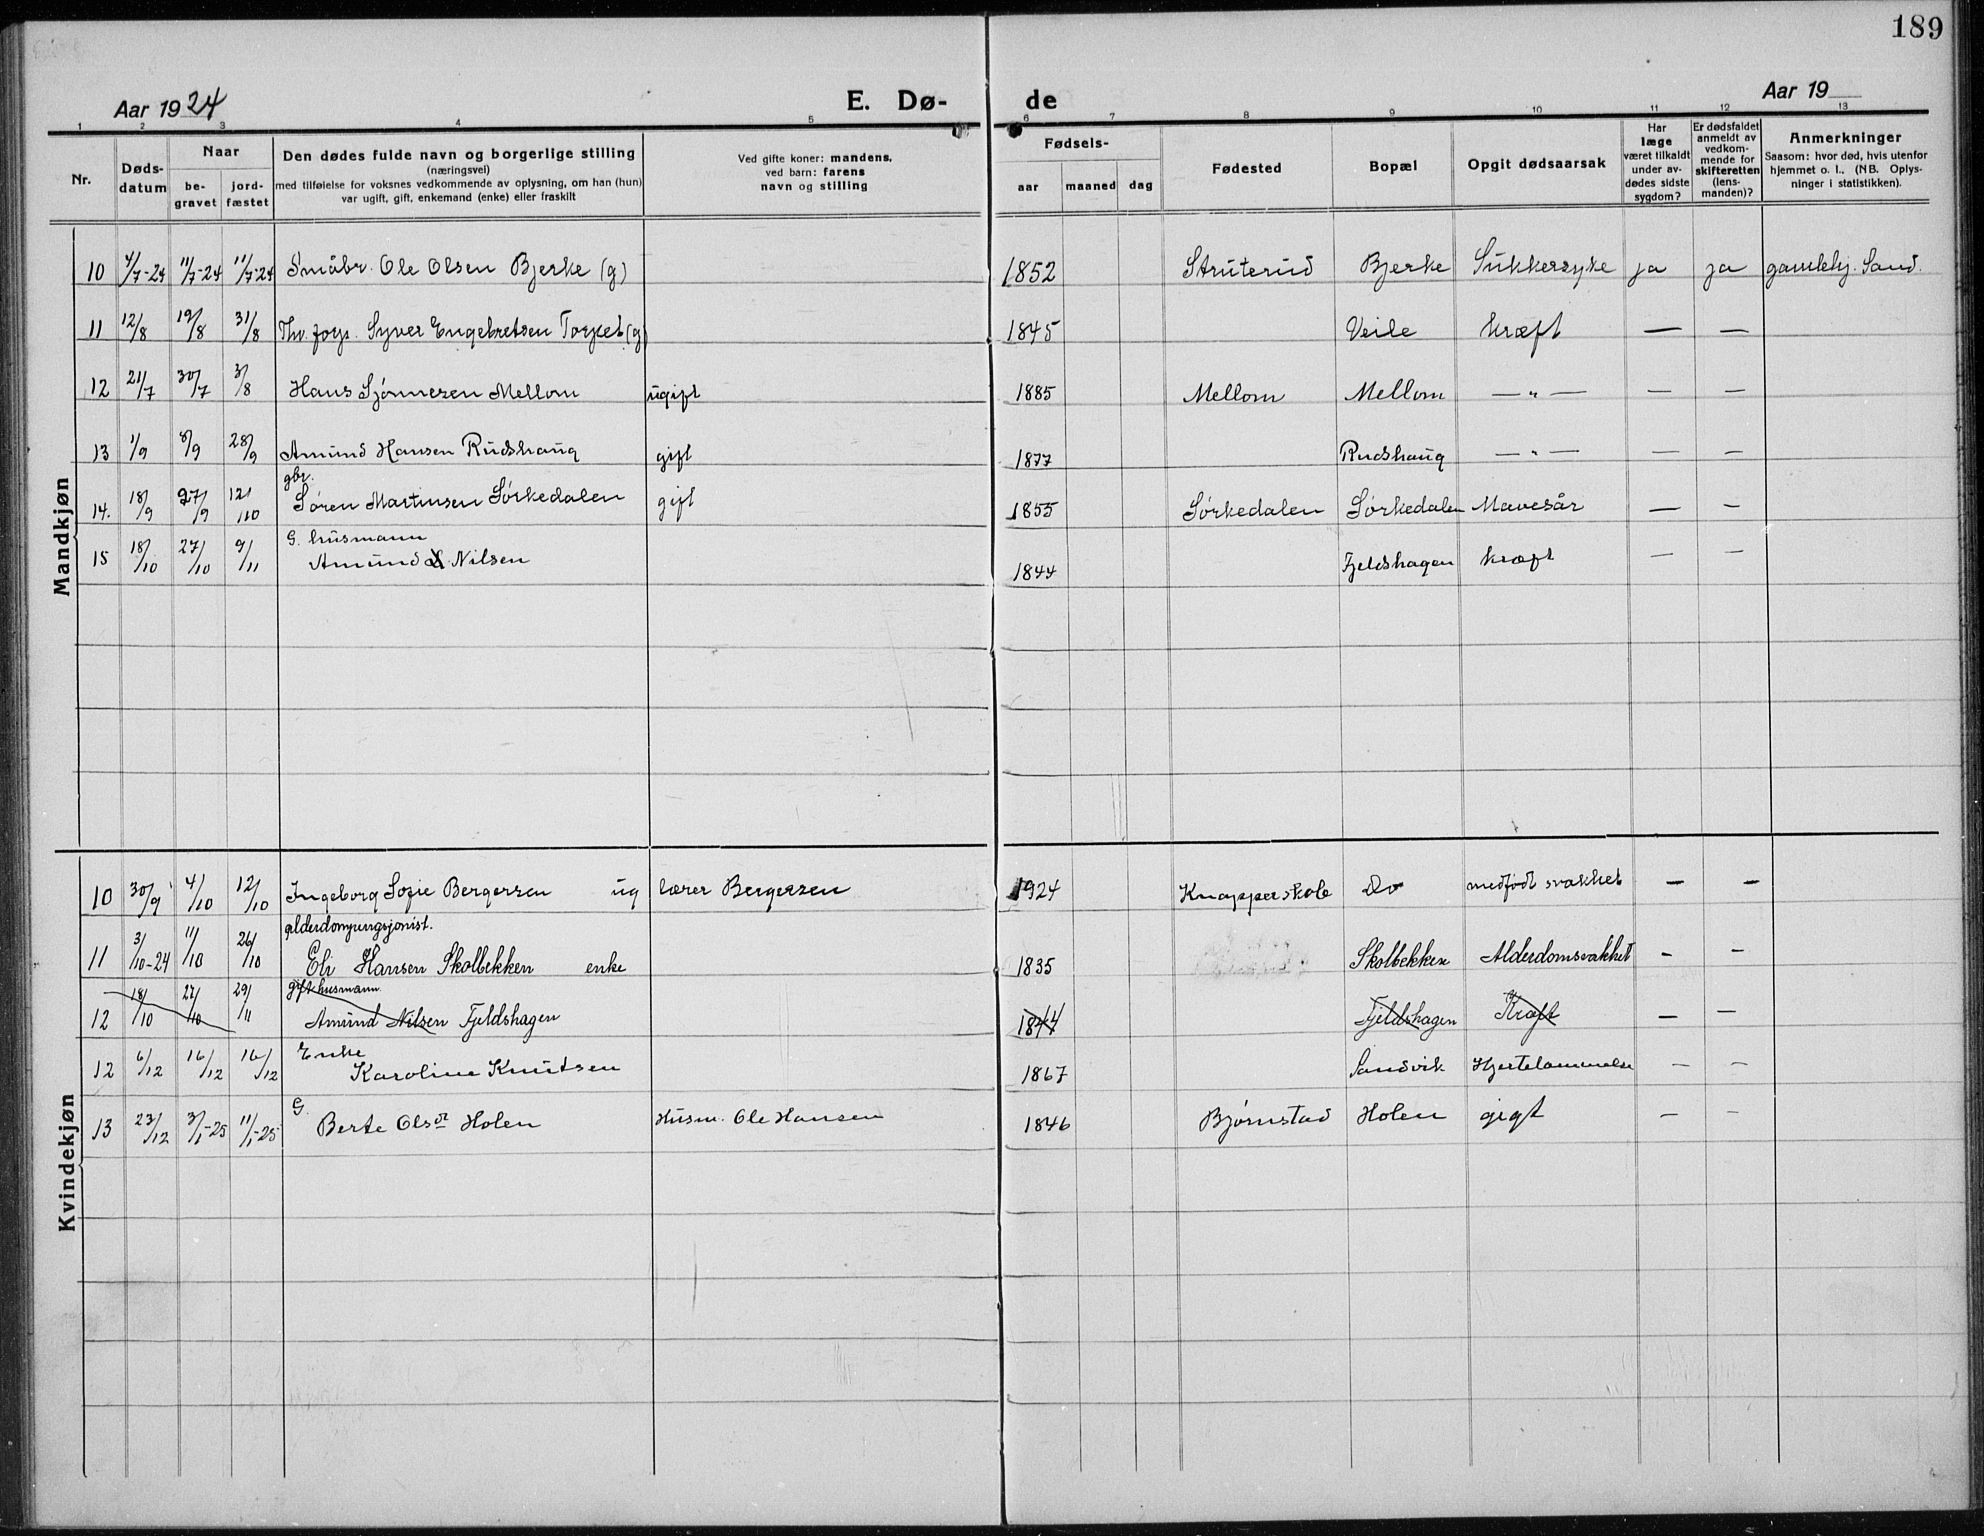 189
Aar 1924 E. Dø- de Aar 19
1 2 3 4 5 6 7 8 9 10 11 12 13
Nr.
Døds-datum
Naar
be-gravet
jord-fæstet
Den dødes fulde navn og borgerlige stilling
(næringsvei)
med tilføielse for voksnes vedkommende av oplysning, om han (hun)
var ugift, gift, enkemand (enke) eller fraskilt
Ved gifte koner: mandens,
ved barn: farens
navn og stilling
Fødsels-
aar maaned dag
Fødested
Bopæl
Opgit dødsaarsak
Har læge været tilkaldt under av-dødes sidste sygdom?
Er dødsfaldet anmeldt av vedkom-mende for skifteretten (lens-manden)?
Anmerkninger
Saasom: hvor død, hvis utenfor
hjemmet o. l., (NB. Oplys-
ninger i statistikken).
Mandkjøn
10 4/7-24 11/7-24 11/7-24 Småbr. Ole Olsen Bjerke (g) 1852 Struterud Bjerke Sukkersyke ja ja gamlehj. Sand.
11 12/8 19/8 31/8 Syver Engebretsen (g) 1845 Veile kræft — —
12 21/7 30/7 3/8 Hans Sjønnesen Mellom ugift 1885 Mellom Mellom — " — — —
13 1/9 8/9 28/9 Amund Hansen Rudshaug gift 1877 Rudshaug — " — — —
gbr.
14. 18/9 27/9 12/10 Søren Martinsen Sørkedalen gift 1855 Sørkedalen Sørkedalen Mavesår — —
G. husmann
15 18/10 27/10 9/11 Amund Nilsen 1844 Fjeldshagen kræft — —
Kvindekjøn
10 30/9 4/10 12/10 Ingeborg Sofie Bergersen ug lærer Bergersen 1924 Knapperskole Do medfødt svakhet — —
11 3/10-24 11/10 26/10 Eli Hansen Skolbekken enke 1835 Skolbekken Alderdomsvakhet — —
gift husmann
12 18/10 27/10 29/11 Amund Nilsen Fjeldshagen 1844 Fjeldshagen Kræft — —
Enke
12 6/12 16/12 16/12 Karoline Knutsen 1867 Sandvik Hjertelammelse — —
G.
13 23/12 3/1-25 11/1-25 Berte Olsdt Holen Husm. Ole Hansen 1846 Bjørnstad Holen gigt — —